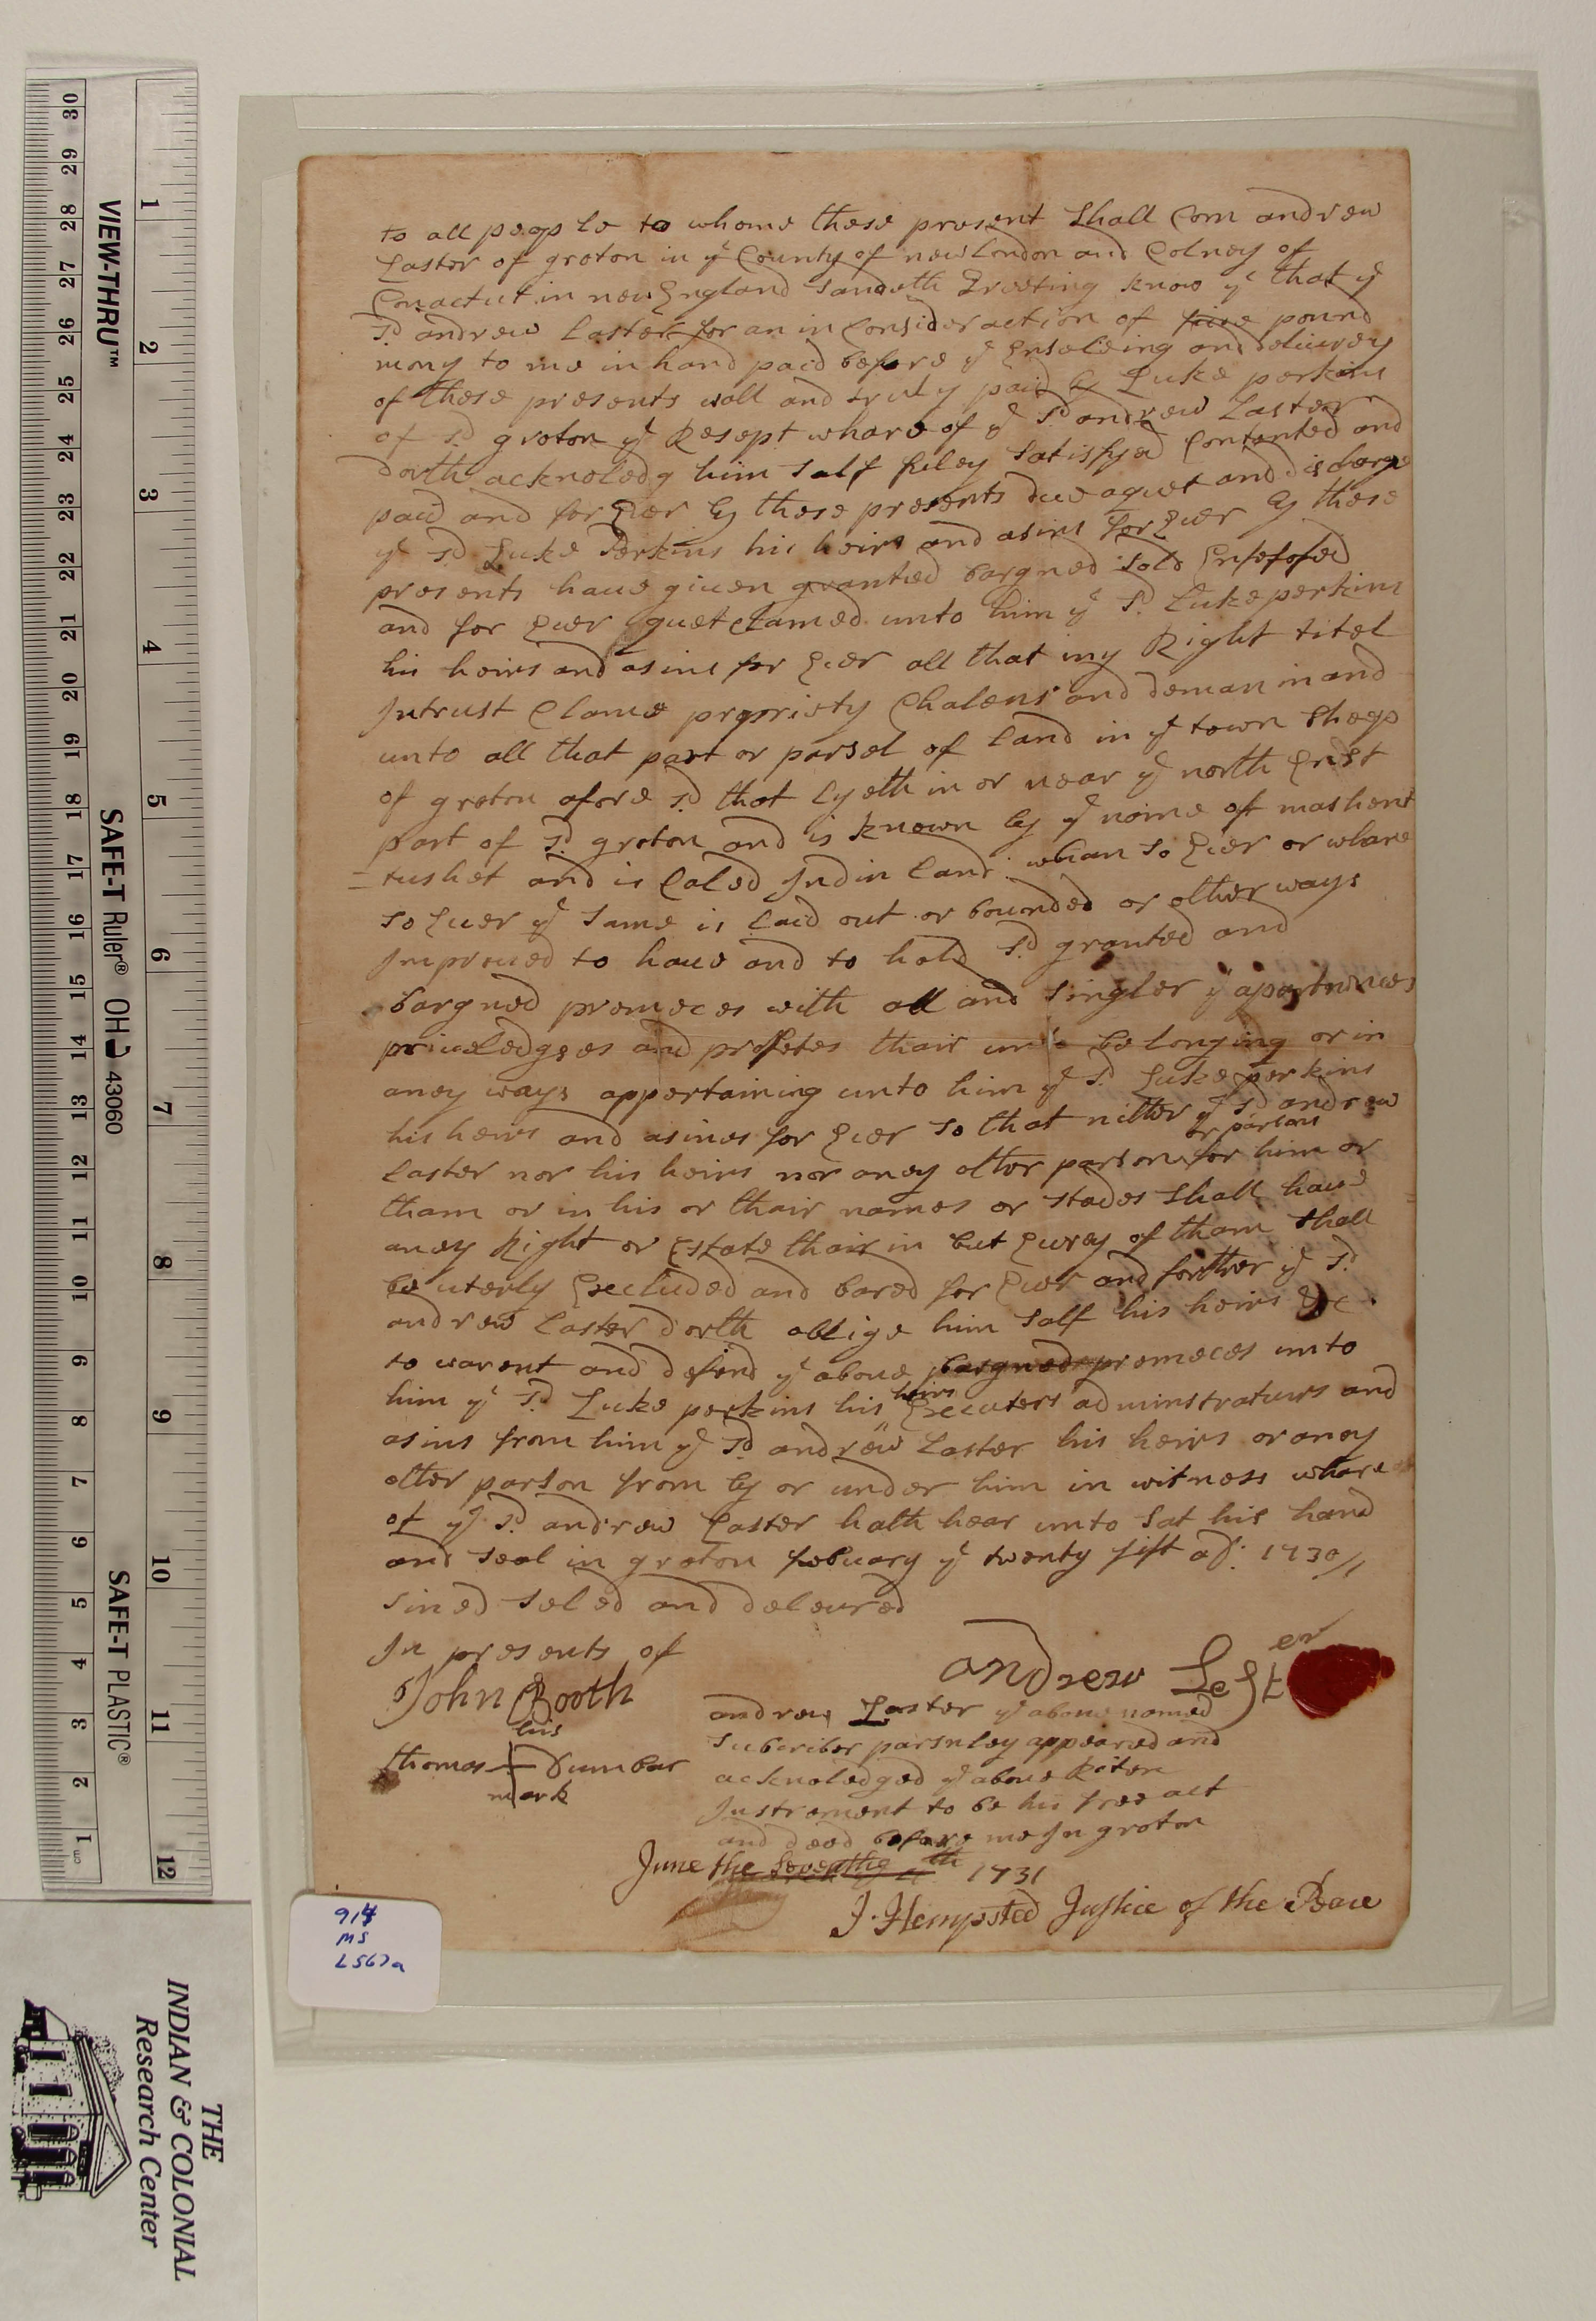 to all peop le to whome these present Shall Com andrew
Laster of groton in ye County of newlondon and Colney of
Conactut in new England Sandeth Greeting know ye that ye
Sd andrew Laster for an in Consideraction of five pound
mony to me in hand paid before ye Ensoleing and deliuery
of these presents wall and truly paid by Luke perkins
of Sd groton ye Resept whare of ye Sd andrew Laster
doth acknoledg him Salf fuley Satisfyed Contented and
paid and for Euer by these presents due aquet and discharge
ye Sd Luke Perkins his heirs and asins for Euer by these
presents haue giuen granted bargned Sold Enfeofed
and for Euer quet Clamed unto him ye Sd Luke perkins
his heirs and asins for Euer all that my Right titel
Intrust Clame propriety Chalens and deman in and
unto all that part or parsel of land in ye town Shepe
of groton afore Sd that lyeth in or near ye north East
part of Sd groton and is known by ye name of mashent
= tushet and is Caled Indin land whan So Euer or whare
So Euer ye Same is laid out or bounded or other ways
Improued to haue and to hold Sd granted and
bargned promeces with all and Singler ye apartnences
priueledgees and profetes thair be longing or in
aney ways appertaining unto him ye Sd Luke perkins
his heirs and asines for Euer So that nither ye Sd andrew
or parsons
Laster nor his heirs nor aney other parson for him or
tham or in his or thair names or stedes Shall haue
aney Right or Estate thair in but Euery of tham Shall
be uterly Excluded and bared for Euer and forther ye Sd
andrew Laster doth oblige him Salf his heirs &c
to warent and defend ye aboue bargned promeces unto
heirs
him ye Sd Luke perkins his Executers adminstraturs and
asins from him ye Sd andrew Laster his heirs or aney
other parson from by or under him in witness whare
of ye Sd andrew Laster hath hear unto Sat his hand
and Seal in groton febuary ye twenty fift ad: 1730/1
Sined Seled and deleured
In presents of
andrew Lester
John Booth
his
thomas + Dunbar
mark
andrew Laster ye aboue named
Subcriber parsnley appeared and
acknoledged ye aboue Riten
Instrement to be his free act
and deed before me In groton
June the Seventh 1731
J. Hempsted Justice of the Peace
914
MS
L567a
VIEW-THRU™
SAFE-T Ruler® OHJ 43060
SAFE-T PLASTIC®
30 29 28 27 26 25 24 23 22 21 20 19 18 17 16 15 14 13 12 11 10 9 8 7 6 5 4 3 2 1
1 2 3 4 5 6 7 8 9 10 11 12
THE
INDIAN & COLONIAL
Research Center